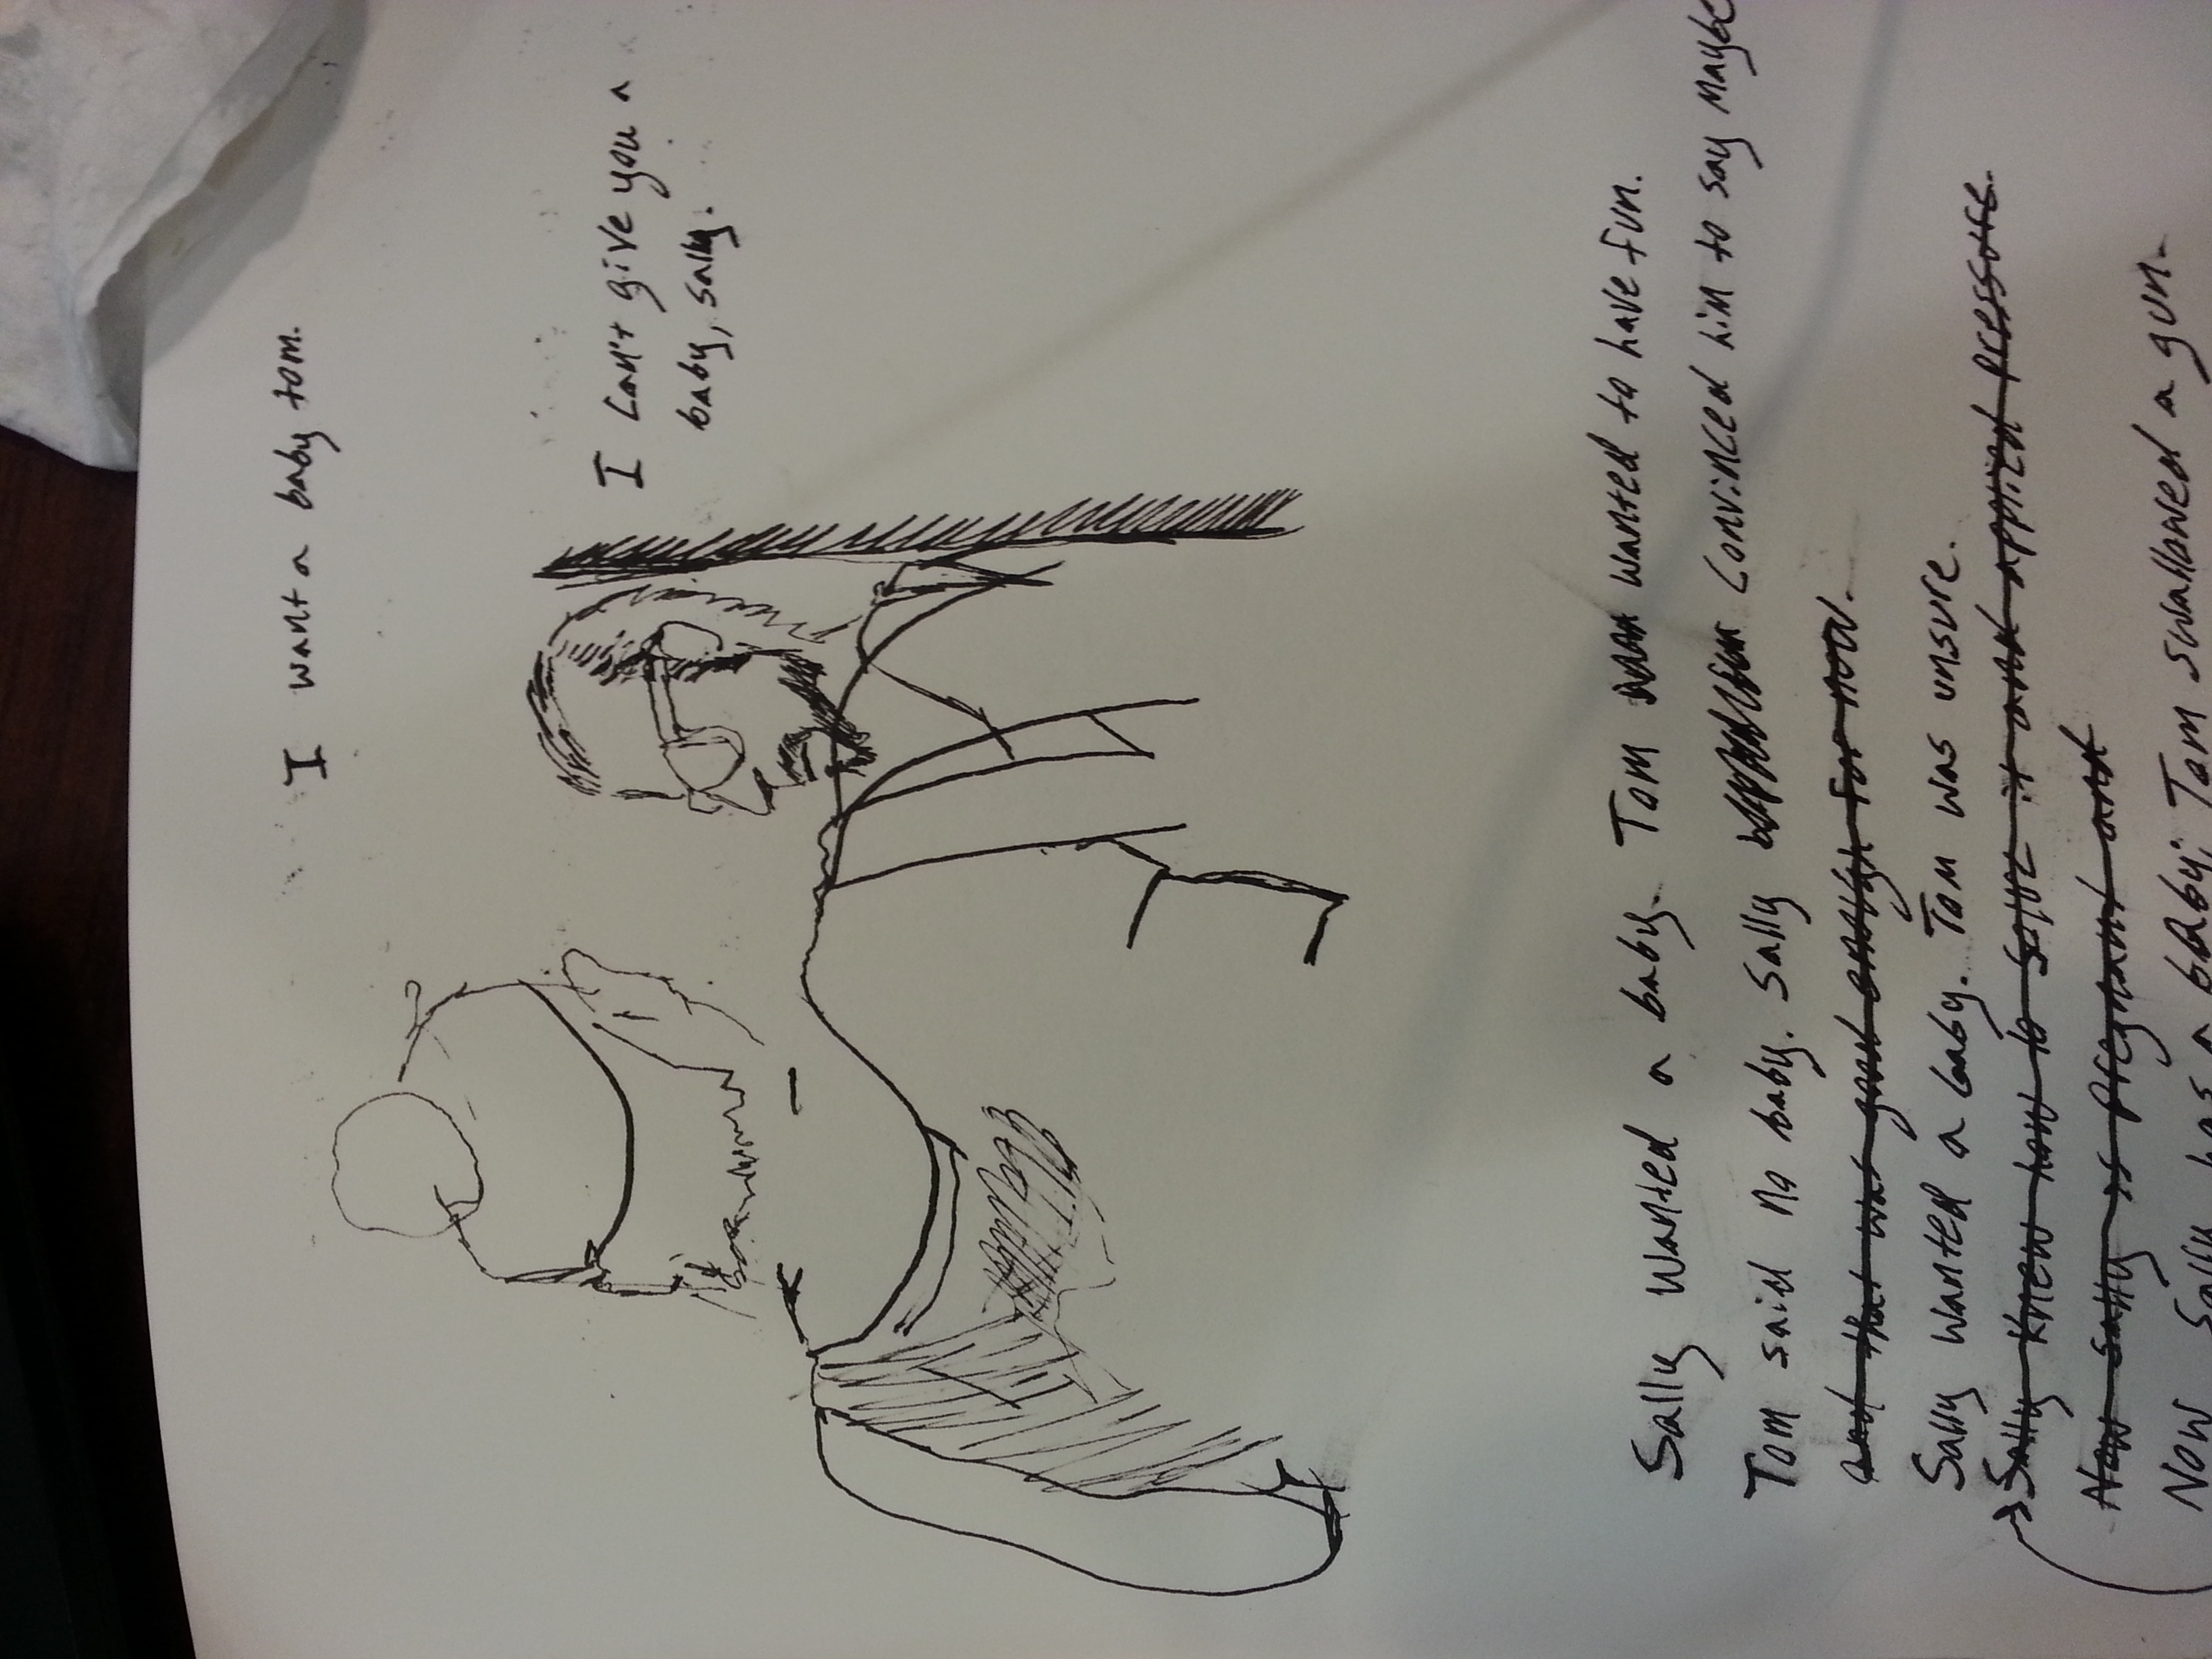 I want a baby tom.
I can't give you a
baby, sally.
Sally wanted a baby. Tom wanted to have fun.
Tom said no baby. Sally convinced him to say maybe
and that was good enough for now.
Sally wanted a baby. Tom was unsure.
Sally knew how to solve it and applied pressure.
Now sally is pregnant and
Now Sally has a baby; Tom swallowed a gun.